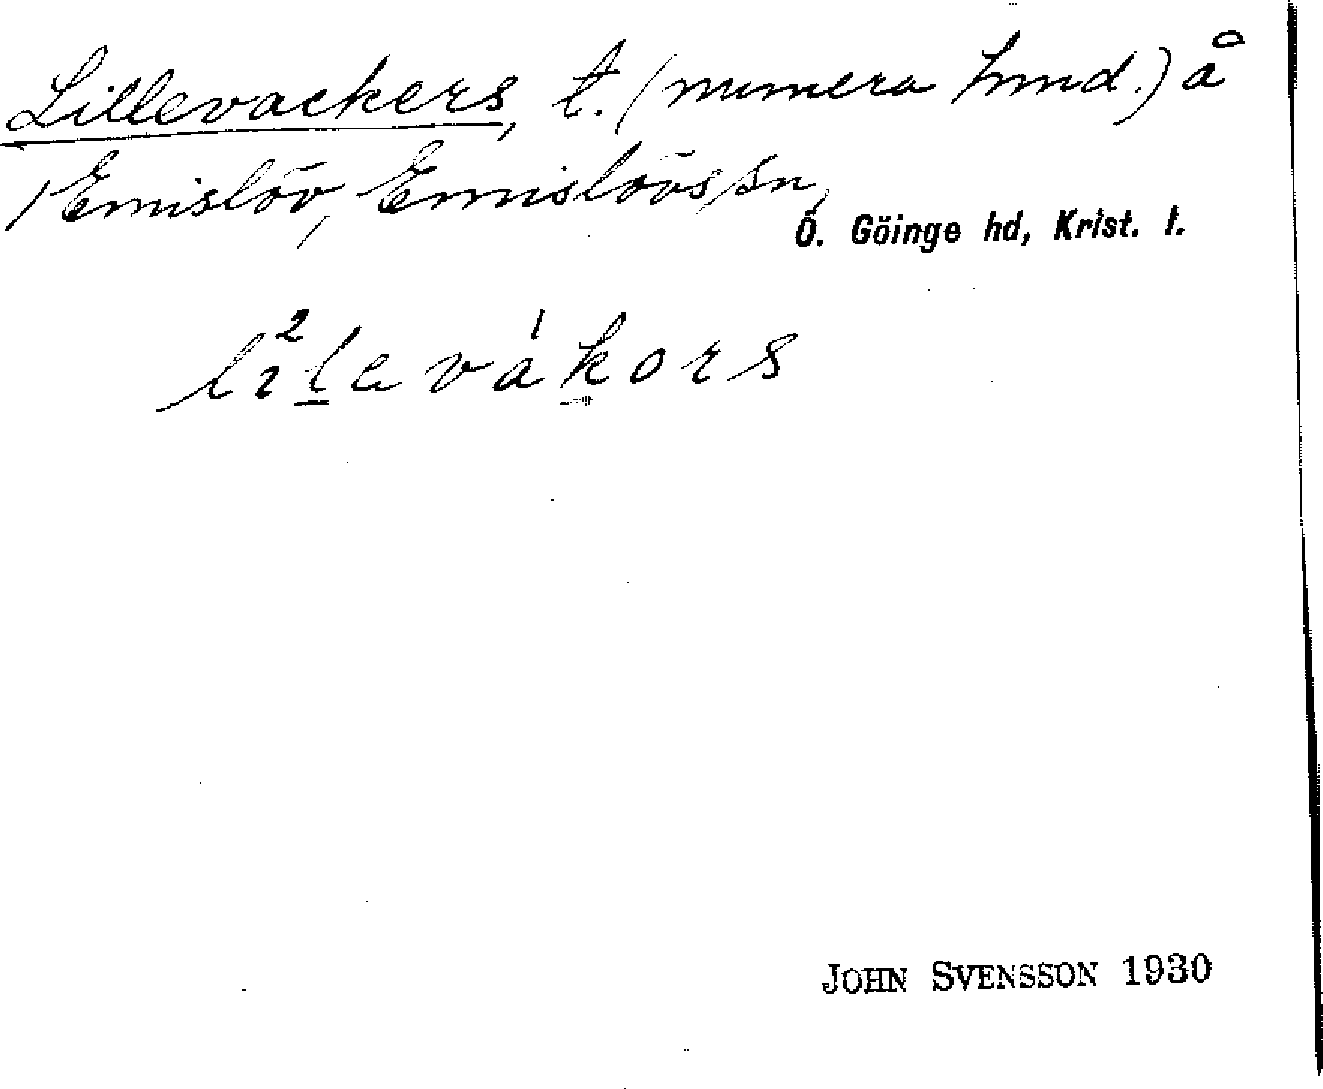 Lillevackers, t. (numera hmd.) å
Emislöv, Emislövs sn,
Ö. Göinge hd, Krist. l.
li²levá¹kors
JOHN SVENSSON 1930